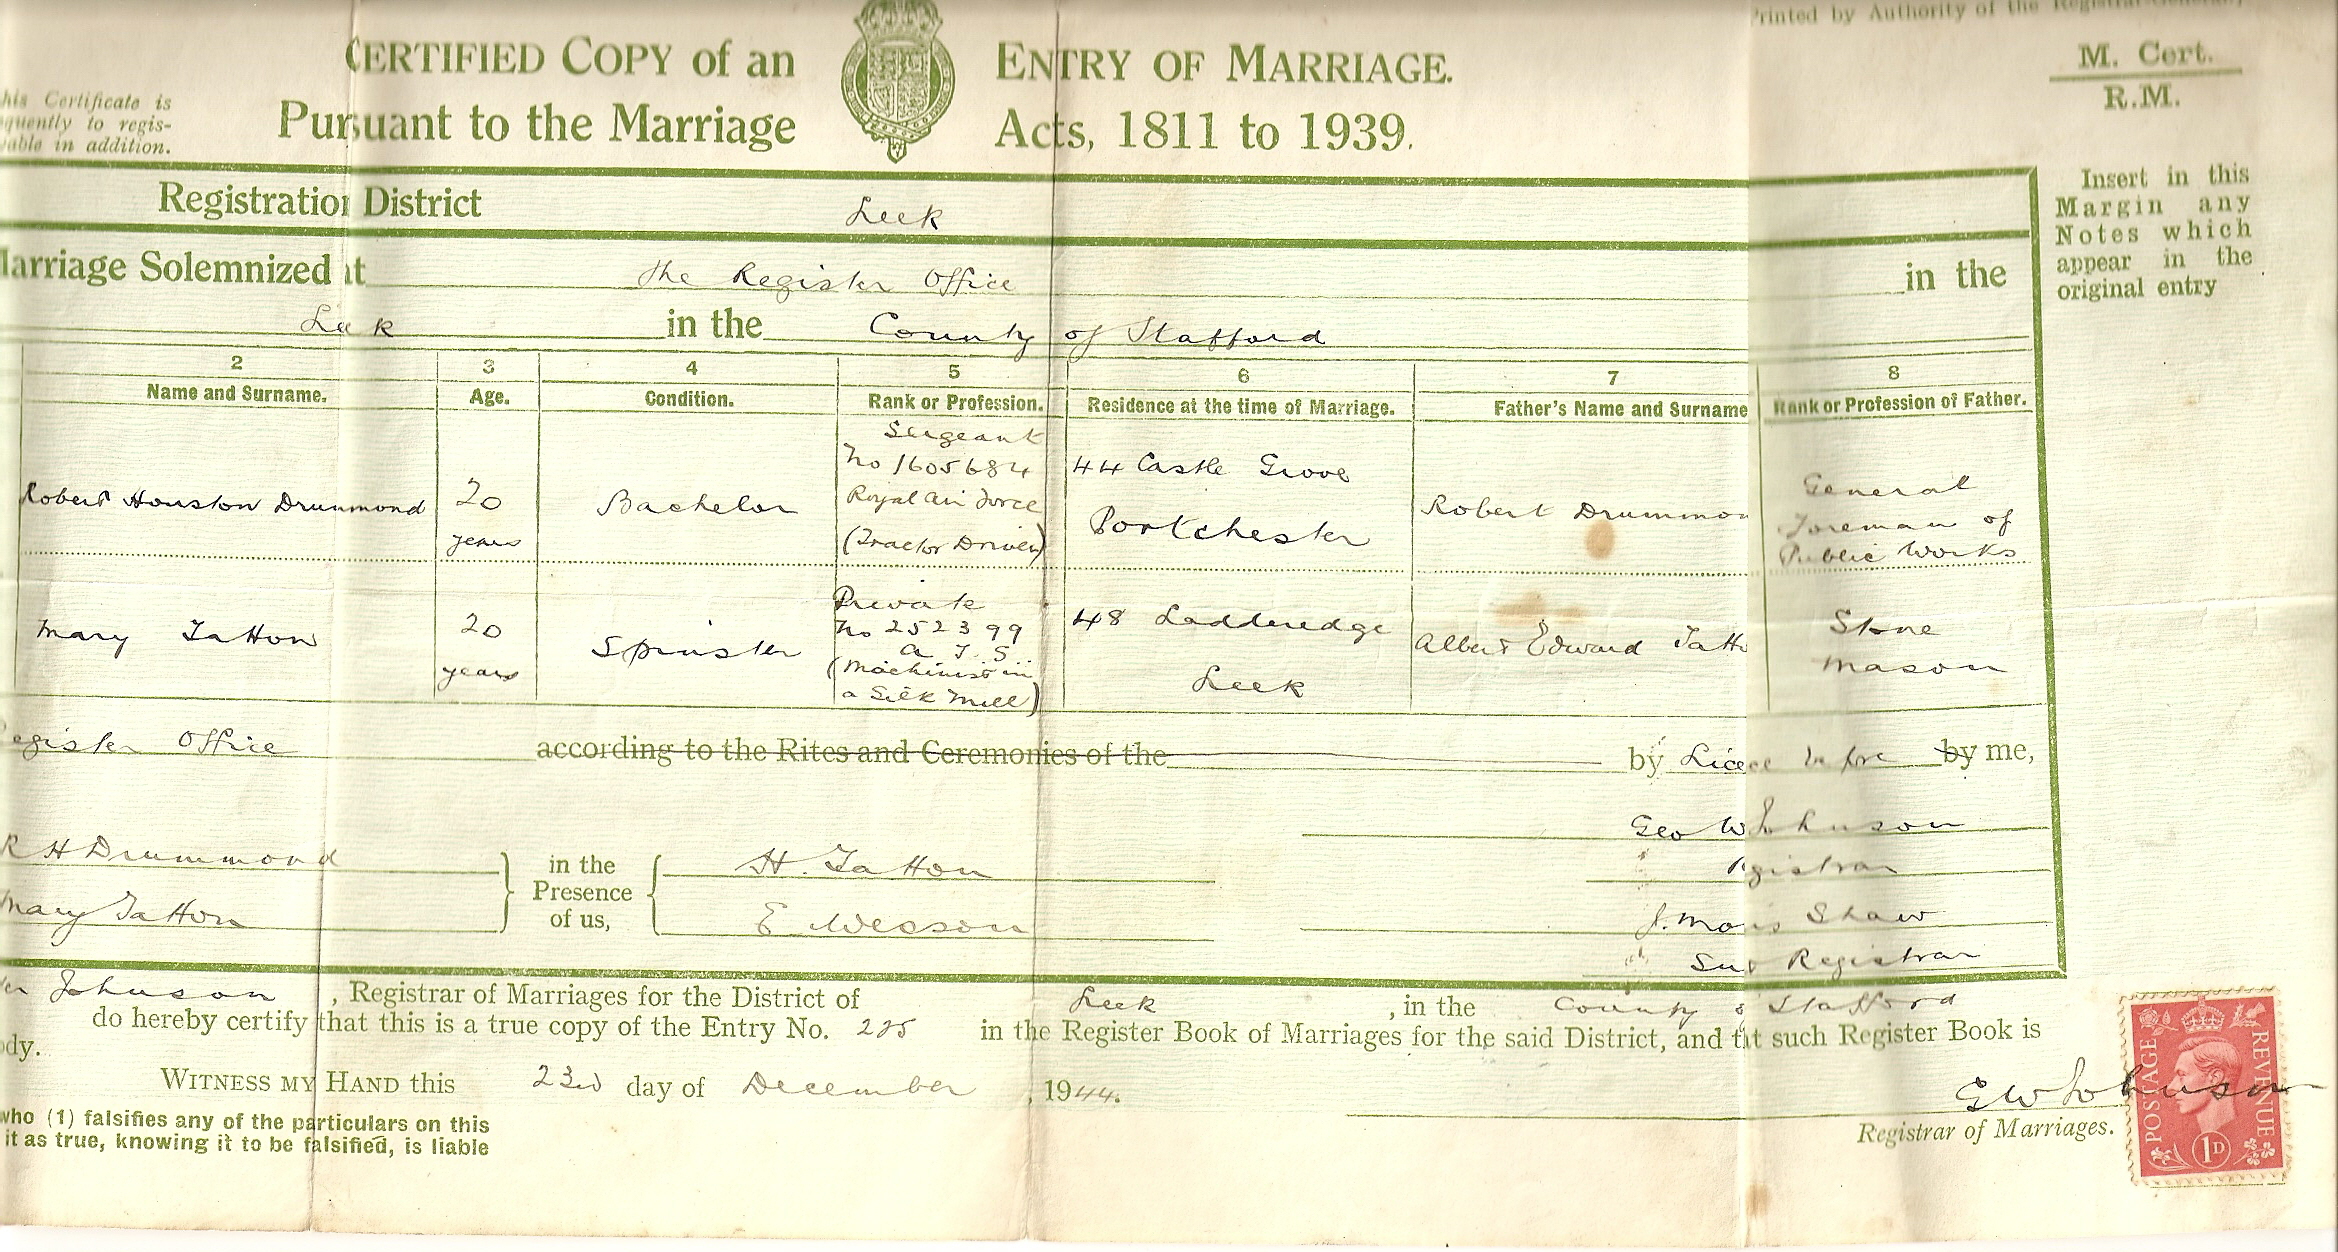 Printed by Authority of the Registrar-General,
CERTIFIED COPY of an ENTRY OF MARRIAGE.
M. Cert.
R.M.
his Certificate is
quently to regis-
able in addition.
Pursuant to the Marriage Acts, 1811 to 1939.
Registration District Leek
Insert in this
Margin any
Notes which
appear in the
original entry
Marriage Solemnized at The Register Office in the
Leek in the County of Stafford
2 3 4 5 6 7 8
Name and Surname. Age. Condition. Rank or Profession. Residence at the time of Marriage. Father's Name and Surname Rank or Profession of Father.
Robert Houston Drummond
20
years
Bachelor
Sergeant
No 1605684
Royal Air Force
(Tractor Driver)
44 Castle Grove
Portchester
Robert Drummon
General
Foreman of
Public Works
Mary Tatton
20
years
Spinster
Private
No 252399
A T S
(Machinist in
a Silk Mill)
48 Ladderedge
Leek
Albert Edward Tatt
Stone
Mason
egister Office according to the Rites and Ceremonies of the by Lice ce before by me,
R H Drummond
Mary Tatton
in the
Presence
of us,
H. Tatton
E Wesson
Geo W Johnson
Registrar
J. Mo is Shaw
Sup Registrar
er Johnson, Registrar of Marriages for the District of Leek, in the County of Stafford
do hereby certify that this is a true copy of the Entry No. 285 in the Register Book of Marriages for the said District, and that such Register Book is
ody.
WITNESS MY HAND this 23rd day of December, 1944.
G W Johnson
Registrar of Marriages.
who (1) falsifies any of the particulars on this
it as true, knowing it to be falsified, is liable
POSTAGE
REVENUE
1D